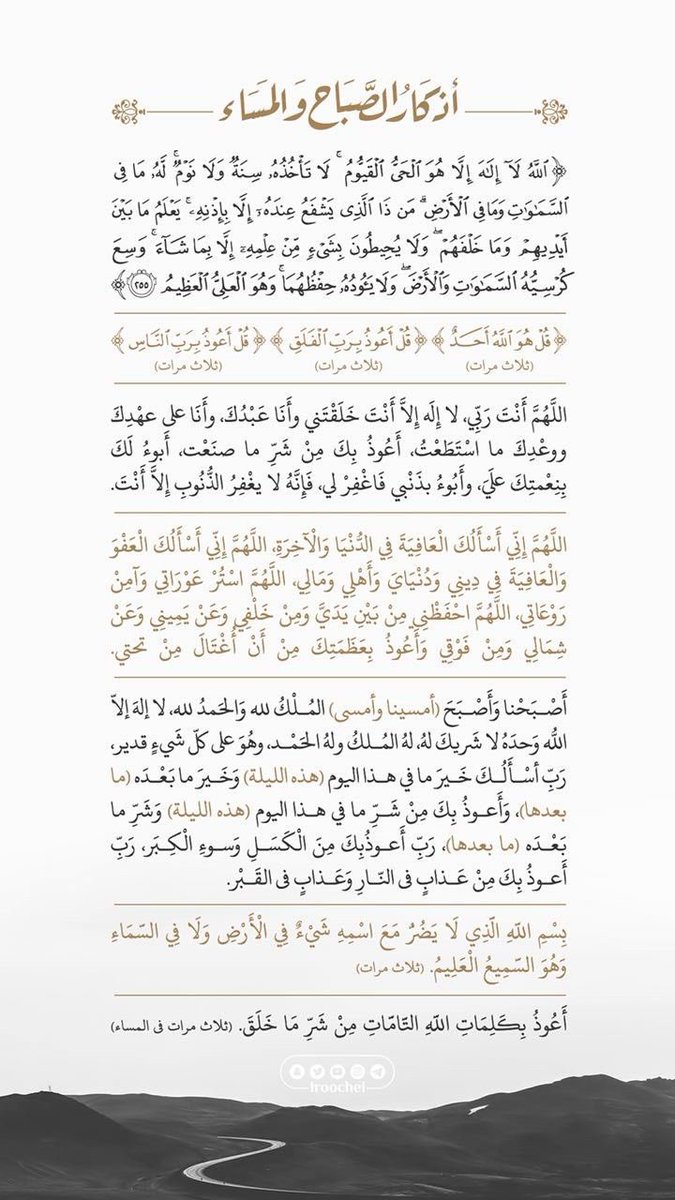 أذكار الصَّبَاح وَالمَسَاء
﴿ ٱللَّهُ لَآ إِلَٰهَ إِلَّا هُوَ ٱلْحَىُّ ٱلْقَيُّومُ ۚ لَا تَأْخُذُهُۥ سِنَةٌ وَلَا نَوْمٌ ۚ لَّهُۥ مَا فِى
ٱلسَّمَٰوَٰتِ وَمَا فِى ٱلْأَرْضِ ۗ مَن ذَا ٱلَّذِى يَشْفَعُ عِندَهُۥٓ إِلَّا بِإِذْنِهِۦ ۚ يَعْلَمُ مَا بَيْنَ
أَيْدِيهِمْ وَمَا خَلْفَهُمْ ۖ وَلَا يُحِيطُونَ بِشَىْءٍ مِّنْ عِلْمِهِۦٓ إِلَّا بِمَا شَآءَ ۚ وَسِعَ
كُرْسِيُّهُ ٱلسَّمَٰوَٰتِ وَٱلْأَرْضَ ۖ وَلَا يَـُٔودُهُۥ حِفْظُهُمَا ۚ وَهُوَ ٱلْعَلِىُّ ٱلْعَظِيمُ ٢٥٥ ﴾
﴿ قُلْ هُوَ ٱللَّهُ أَحَدٌ ﴾ ﴿ قُلْ أَعُوذُ بِرَبِّ ٱلْفَلَقِ ﴾ ﴿ قُلْ أَعُوذُ بِرَبِّ ٱلنَّاسِ ﴾
(ثلاث مرات) (ثلاث مرات) (ثلاث مرات)
اللَّهُمَّ أَنْتَ رَبِّي، لا إِلَه إِلاَّ أَنْتَ خَلَقْتَني وأَنَا عَبْدُكَ، وأَنَا على عهْدِكَ
ووعْدِكَ ما اسْتَطَعْتُ، أَعُوذُ بِكَ مِنْ شَرِّ ما صنَعْت، أَبوءُ لَكَ
بِنِعْمتِكَ علَيَ، وأَبُوءُ بذَنْبي فَاغْفِرْ لي، فَإِنَّهُ لا يغْفِرُ الذُّنُوبِ إِلاَّ أَنْتَ.
اللَّهُمَّ إِنِّي أَسْأَلُكَ الْعَافِيَةَ فِي الدُّنْيَا وَالْآخِرَةِ، اللَّهُمَّ إِنِّي أَسْأَلُكَ الْعَفْوَ
وَالْعَافِيَةَ فِي دِينِي وَدُنْيَايَ وَأَهْلِي وَمَالِي، اللَّهُمَّ اسْتُرْ عَوْرَاتِي وَآمِنْ
رَوْعَاتِي، اللَّهُمَّ احْفَظْنِي مِنْ بَيْنِ يَدَيَّ وَمِنْ خَلْفِي وَعَنْ يَمِينِي وَعَنْ
شِمَالِي وَمِنْ فَوْقِي وَأَعُوذُ بِعَظَمَتِكَ مِنْ أَنْ أُغْتَالَ مِنْ تحتي.
أَصْبَحْنا وَأَصْبَحَ (أمسينا وأمسى) المُـلْكُ لله وَالحَمدُ لله، لا إلهَ إلاّ
اللّه وَحدَهُ لا شَريكَ لهُ، لهُ المُـلكُ ولهُ الحَمْـد، وهُوَ على كلّ شَيءٍ قدير،
رَبِّ أسْـأَلُـكَ خَـيرَ ما في هـذا اليوم (هذه الليلة) وَخَـيرَ ما بَعْـدَه (ما
بعدها)، وَأَعـوذُ بِكَ مِنْ شَـرِّ ما في هـذا اليوم (هذه الليلة) وَشَرِّ ما
بَعْـدَه (ما بعدها)، رَبِّ أَعـوذُبِكَ مِنَ الْكَسَـلِ وَسـوءِ الْكِـبَر، رَبِّ
أَعـوذُ بِكَ مِنْ عَـذابٍ في النّـارِ وَعَـذابٍ في القَـبْر.
بِسْمِ اللّهِ الَّذِي لَا يَضُرُ مَعَ اسْمِهِ شَيْءٌ فِي الْأَرْضِ وَلَا فِي السّمَاءِ
وَهُوَ السّمِيعُ الْعَلِيمُ. (ثلاث مرات)
أَعُوذُ بِكَلِمَاتِ اللّهِ التّامّاتِ مِنْ شَرِّ مَا خَلَقَ. (ثلاث مرات في المساء)
iroochel